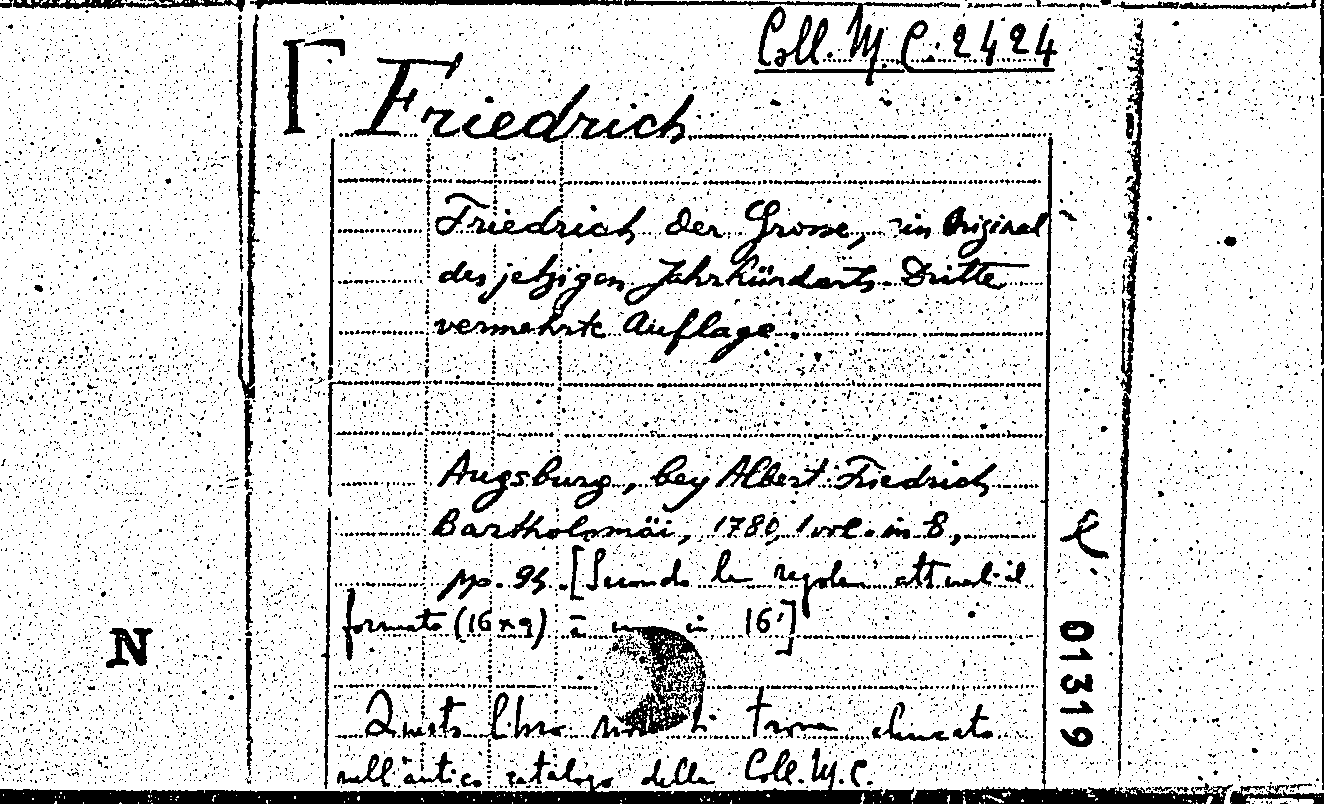 Coll. M. C. 2424
Friedrich
Friedrich der Grosse, in Original
des jetzigen Jahrhünderts. Dritte
vermehrte Auflage.
Augsburg, bey Albert Friedrich
Bartholomäi, 1780, 1 vol. in 8,
pp. 94. [Secondo le regole attuali il
formato (16x9) è in 16°]
N
01319
Questo libro non si trova elencato
nell'antico catalogo della Coll. M. C.